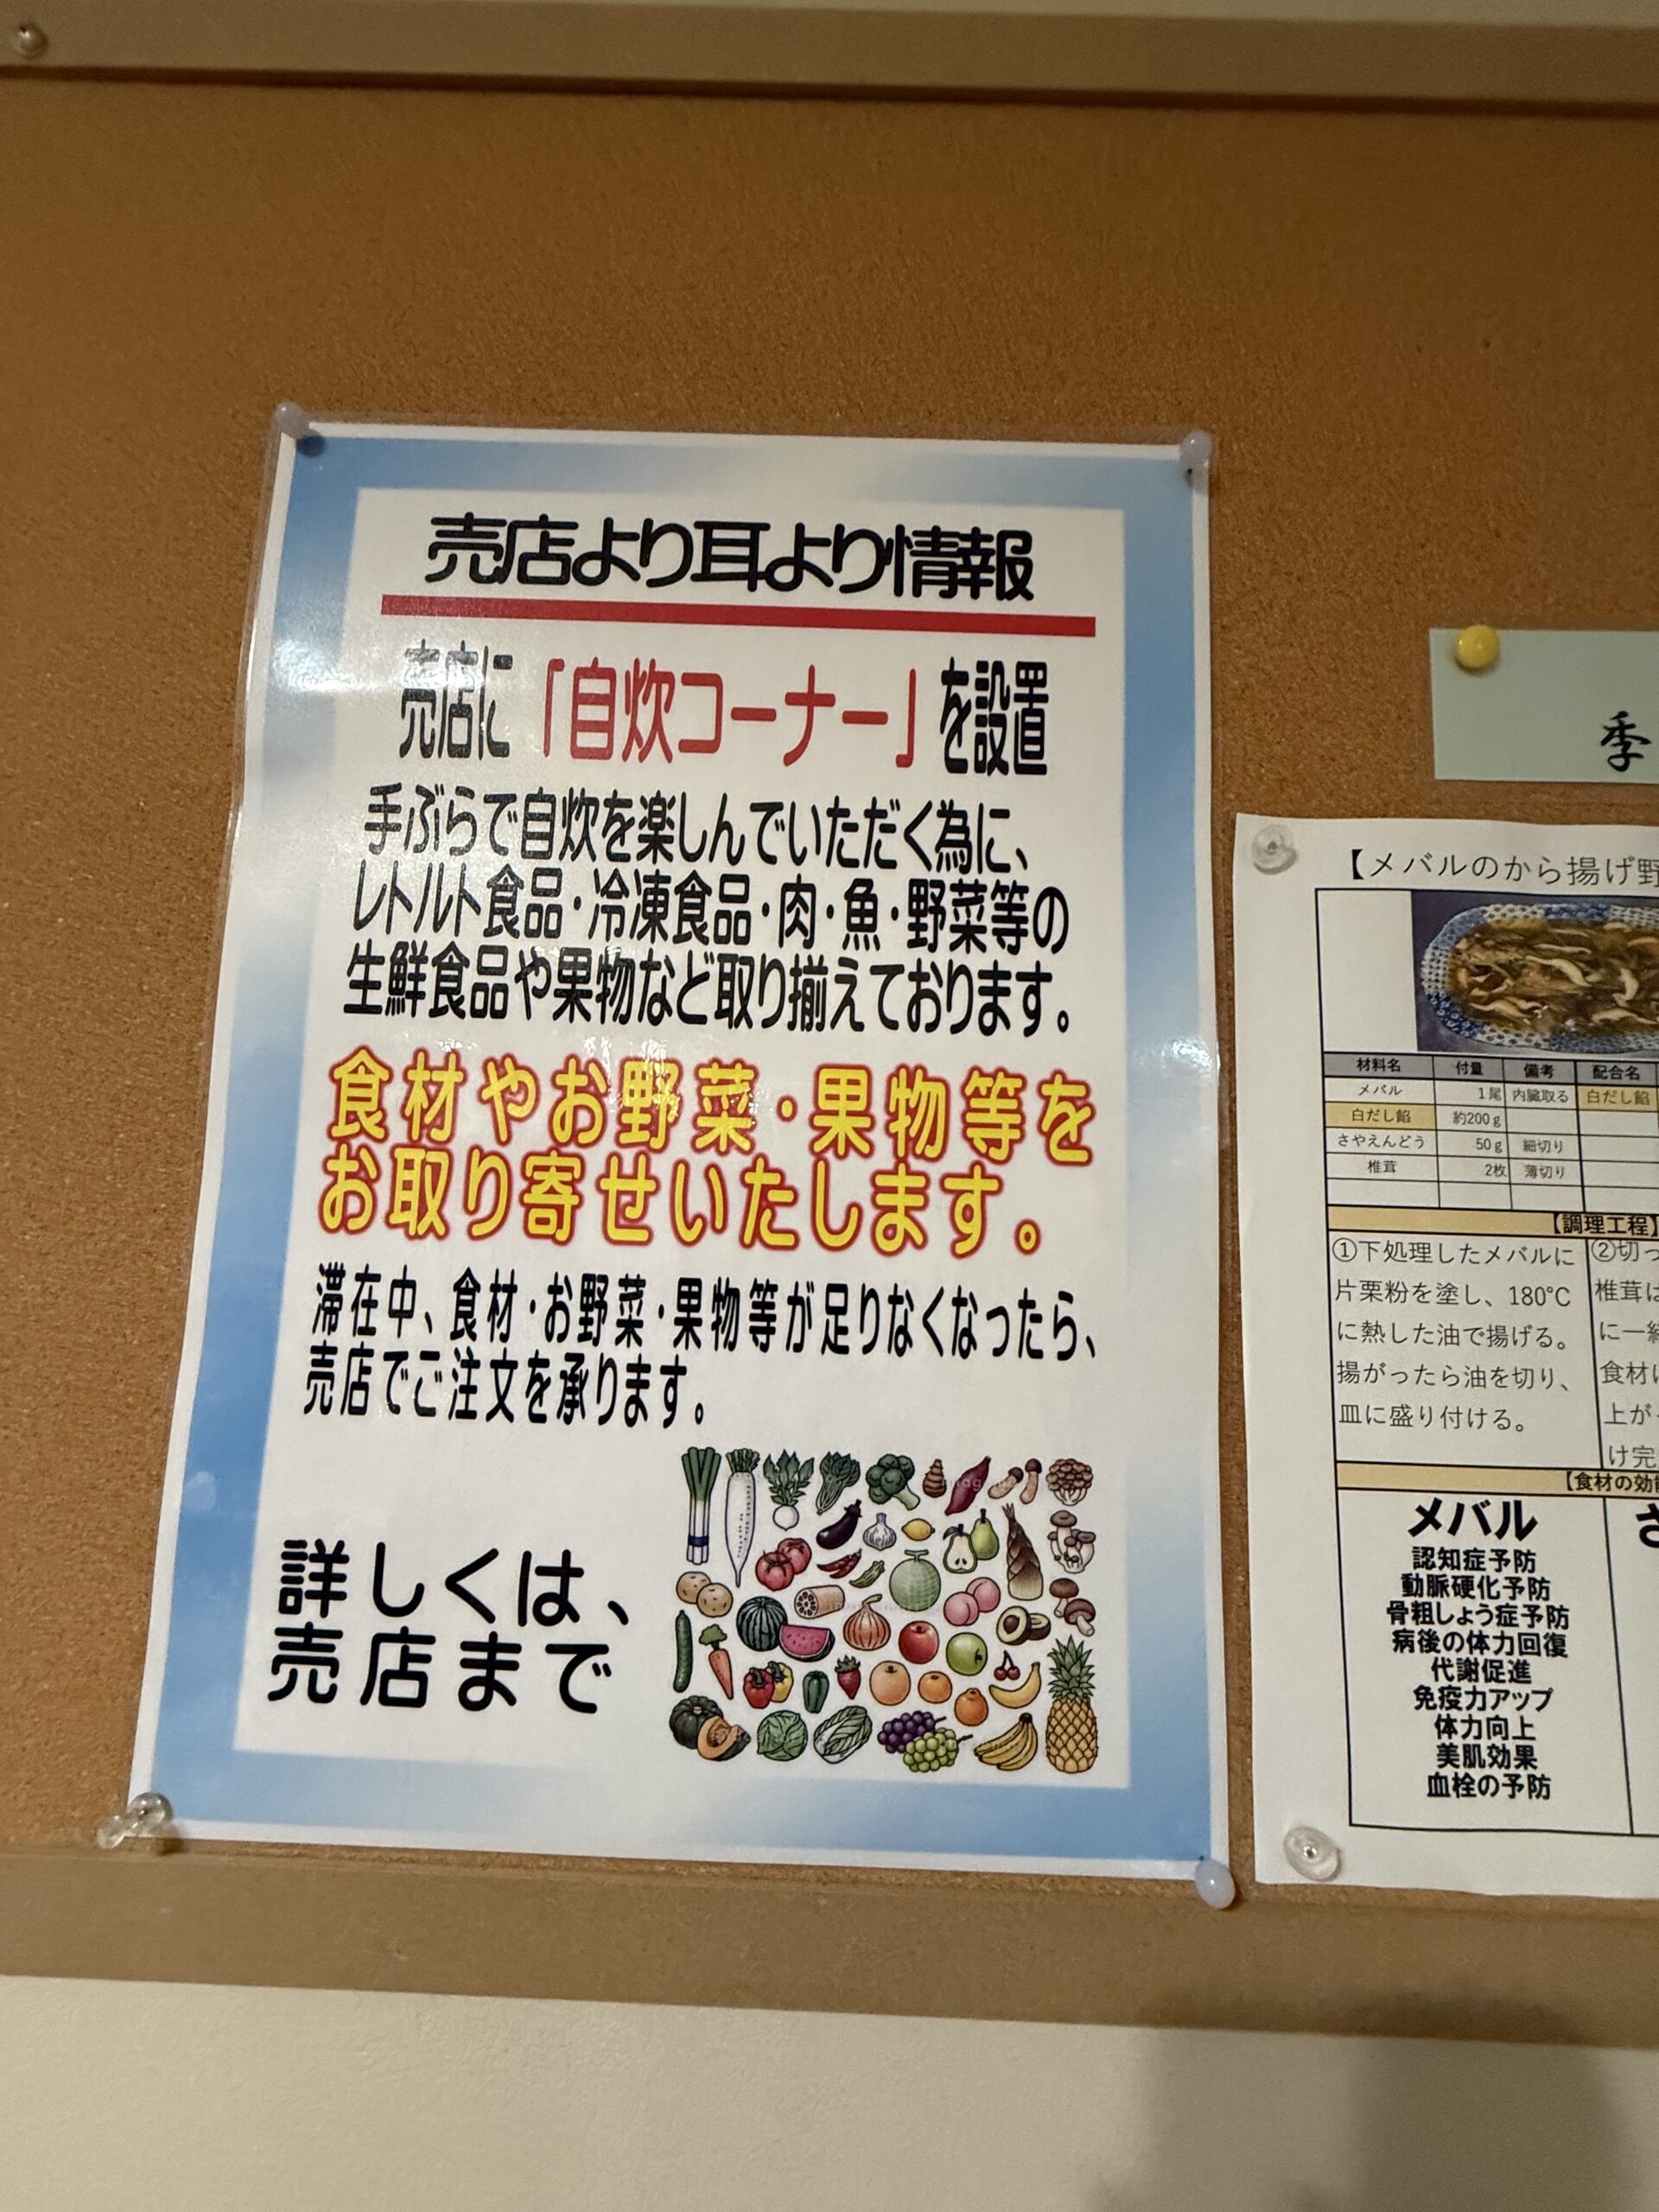 売店より耳より情報
売店に「自炊コーナー」を設置
手ぶらで自炊を楽しんでいただく為に、
レトルト食品・冷凍食品・肉・魚・野菜等の
生鮮食品や果物など取り揃えております。
食材やお野菜・果物等を
お取り寄せいたします。
滞在中、食材・お野菜・果物等が足りなくなったら、
売店でご注文を承ります。
詳しくは、
売店まで
季
【メバルのから揚げ野
材料名 付量 備考 配合名
メバル 1尾 内臓取る 白だし餡
白だし餡 約200g
さやえんどう 50g 細切り
椎茸 2枚 薄切り
【調理工程】
①下処理したメバルに
片栗粉を塗し、180℃
に熱した油で揚げる。
揚がったら油を切り、
皿に盛り付ける。
②切っ
椎茸は
に一緒
食材に
上が
け完
【食材の効能
メバル
認知症予防
動脈硬化予防
骨粗しょう症予防
病後の体力回復
代謝促進
免疫力アップ
体力向上
美肌効果
血栓の予防
さ